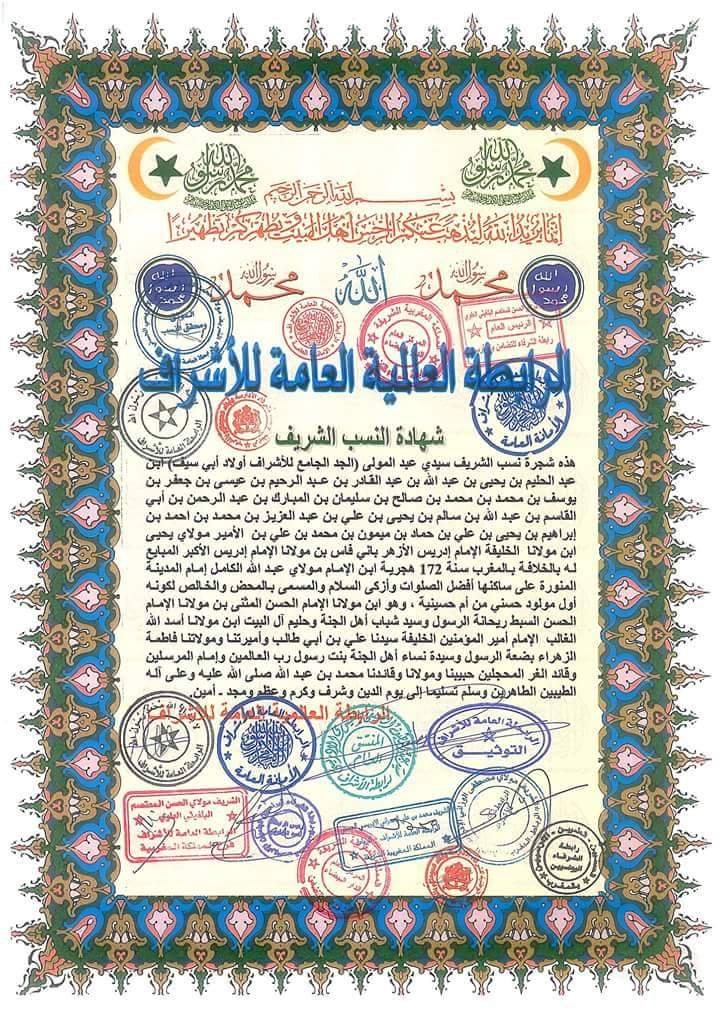 محمد رسول الله
محمد رسول الله
بسم الله الرحمن الرحيم
إنما يريد الله ليذهب عنكم الرجس أهل البيت ويطهركم تطهيرا
الله رسول محمد
محمد رسول الله
الله
محمد رسول الله
الله رسول محمد
الرابطة العالمية العامة للأشراف
شهادة النسب الشريف
هذه شجرة نسب الشريف سيدي عبد المولى (الجد الجامع للأشراف أولاد أبي سيف) ابن
عبد الحليم بن يحيى بن عبد الله بن عبد القادر بن عبد الرحيم بن عيسى بن جعفر بن
يوسف بن محمد بن محمد بن صالح بن سليمان بن المبارك بن عبد الرحمن بن أبي
القاسم بن عبد الله بن سالم بن يحيى بن علي بن عبد العزيز بن محمد بن احمد بن
إبراهيم بن يحيى بن علي بن حماد بن ميمون بن محمد بن علي بن الأمير مولاي يحيى
ابن مولانا الخليفة الإمام إدريس الأزهر باني فاس بن مولانا الإمام إدريس الأكبر المبايع
له بالخلافة بالمغرب سنة 172 هجرية ابن الإمام مولاي عبد الله الكامل إمام المدينة
المنورة على ساكنها أفضل الصلوات وأزكى السلام والمسمى بالمحض والخالص لكونه
أول مولود حسني من أم حسينية ، وهو ابن مولانا الإمام الحسن المثنى بن مولانا الإمام
الحسن السبط ريحانة الرسول وسيد شباب أهل الجنة وحليم آل البيت ابن مولانا أسد الله
الغالب الإمام أمير المؤمنين الخليفة سيدنا علي بن أبي طالب وأميرتنا ومولاتنا فاطمة
الزهراء بضعة الرسول وسيدة نساء أهل الجنة بنت رسول رب العالمين وإمام المرسلين
وقائد الغر المحجلين حبيبنا ومولانا وقائدنا محمد بن عبد الله صلى الله عليه وعلى آله
الطيبين الطاهرين وسلم تسليما إلى يوم الدين وشرف وكرم وعظم ومجد - أمين.
الرابطة العالمية العامة للأشراف
الرابطة العامة للأشراف
التوثيق
الأمانة العامة
الشريف مولاي الحسن المعتصم
الرابطة العامة للأشراف
المملكة المغربية الشريفة
رابطة
الشرفاء